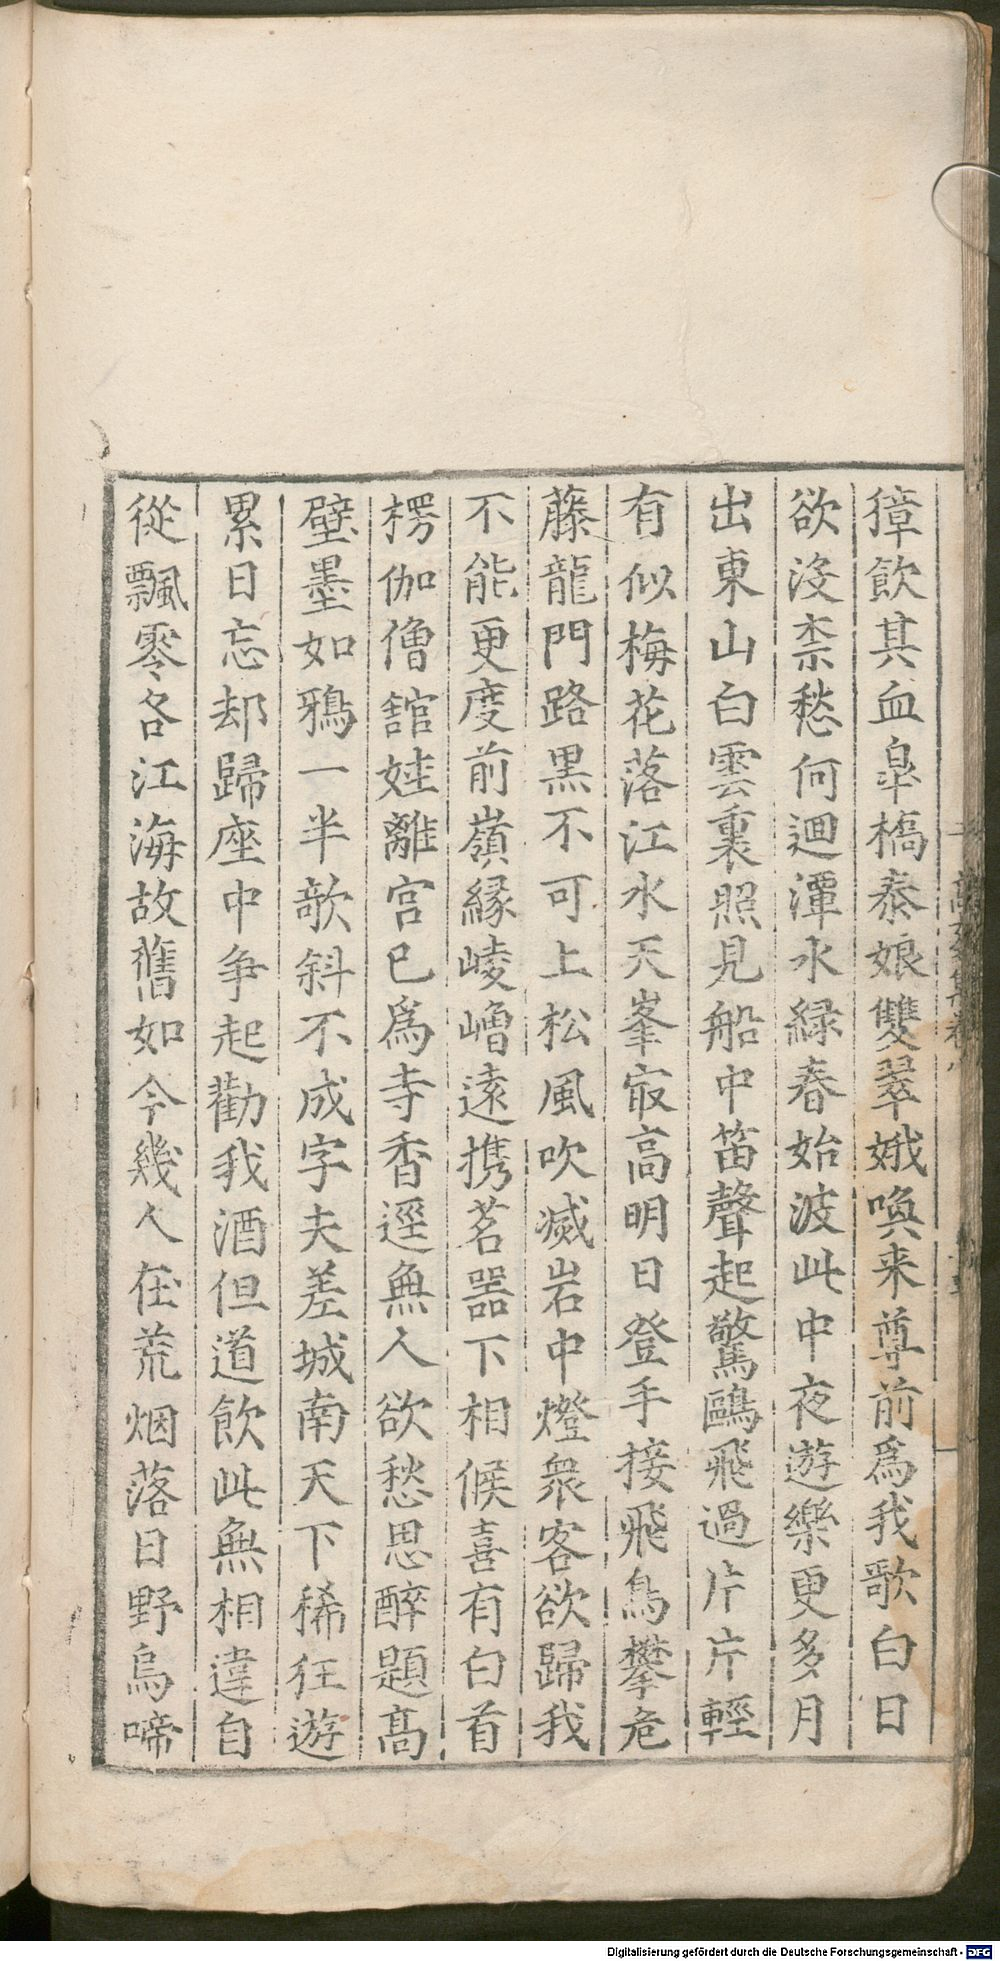 獐飲其血皐橋泰娘雙翠娥喚来尊前爲我歌白日
欲没柰愁何迴潭水緑春始波此中夜遊樂更多月
出東山白雲裏照見船中笛聲起驚鷗飛過片片輕
有似梅花落江水天峯㝡高明日登手接飛鳥攀危
藤龍門路黒不可上松風吹滅岩中燈衆客欲歸我
不能更度前嶺縁崚嶒遠携茗器下相候喜有白首
楞伽僧舘娃離宮已爲寺香逕無人欲愁思醉題髙
壁墨如鴉一半欹斜不成字夫差城南天下稀狂遊
累日忘却歸座中争起勸我酒但道飲此無相違自
從飄零各江海故舊如今幾人在荒烟落日野烏啼
Digitalisierung gefördert durch die Deutsche Forschungsgemeinschaft - DFG